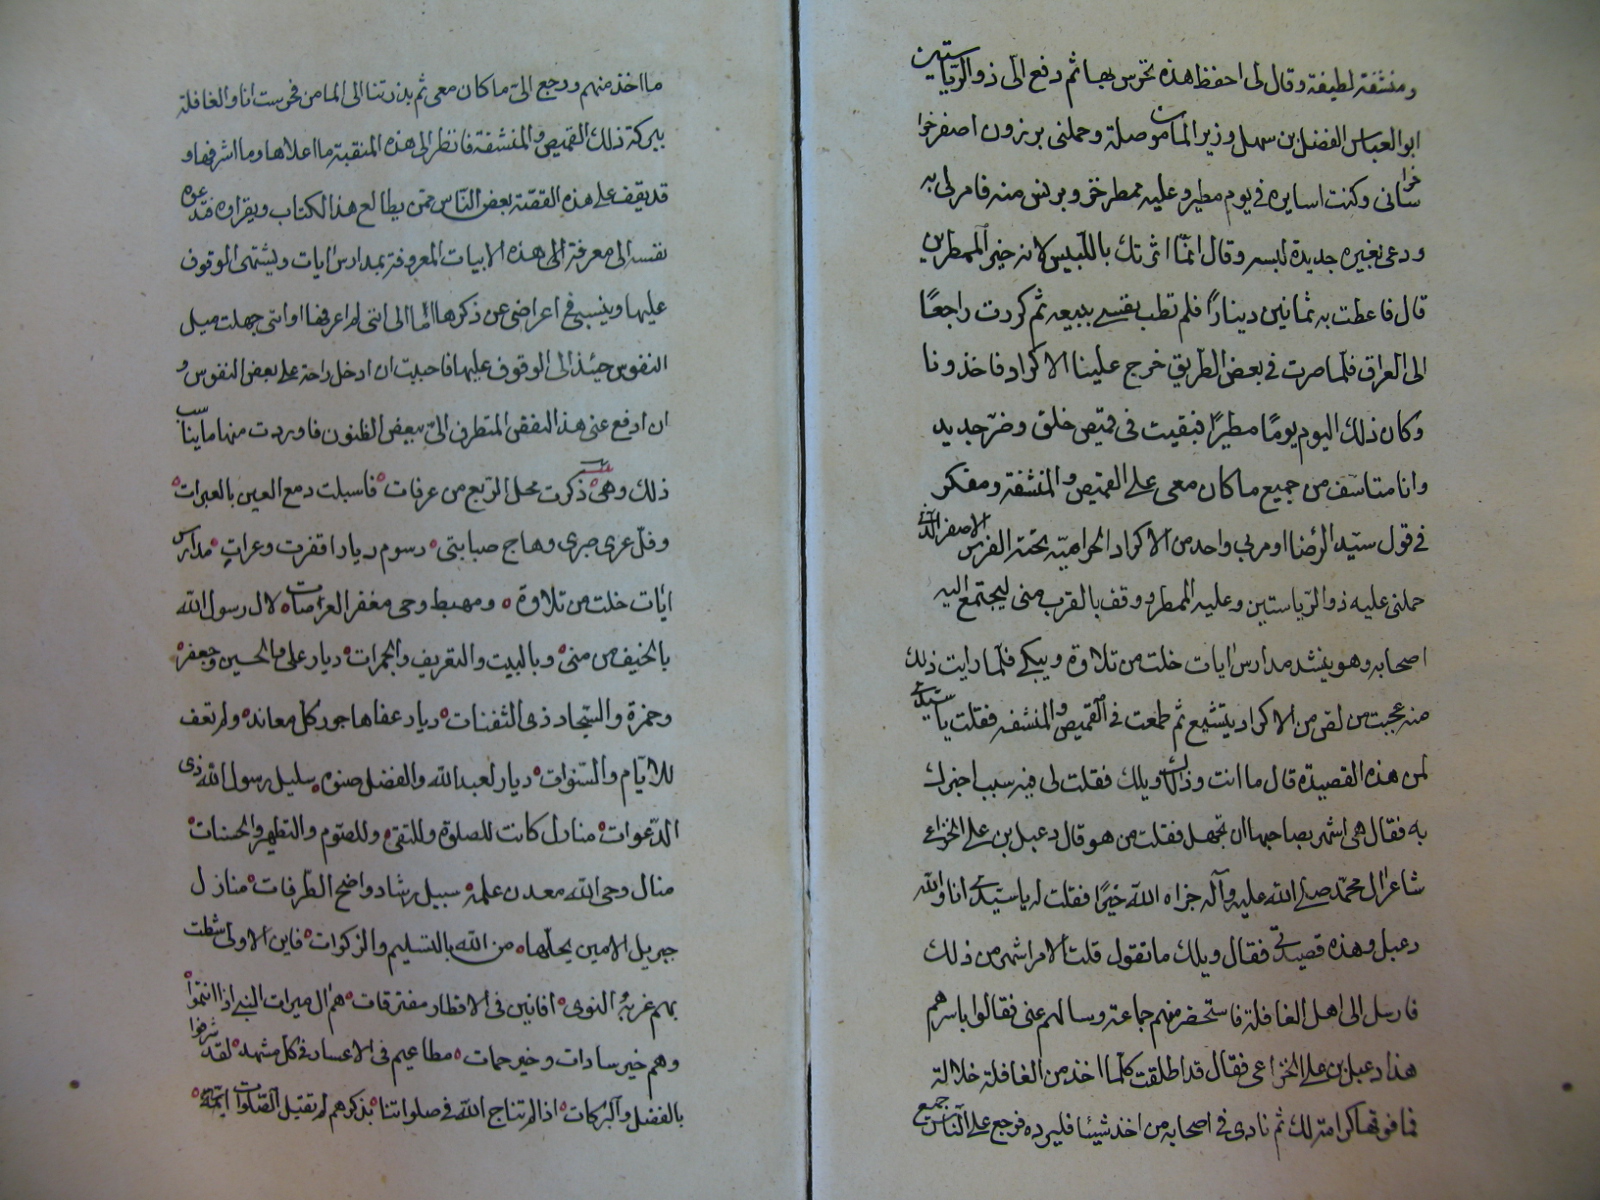 ومنشفة لطيفة وقال لى احفظ هذه تحرس بها ثم دفع الى ذو الرياستين
ابو العباس الفضل بن سهل وزير المامون صلة وحملنى برزون اصفر خرا
سانى وكنت اسايره فى يوم مطير وعليه ممطر خز وبرنس منه فامر لى به
ودعى بغيره جديدة لبسه وقال انما اثرتك باللبيس لانه خير الممطرين
قال فاعطت به ثمانين دينارًا فلم تطب نفسى ببيعه ثم كررت راجعًا
الى العراق فلما صرت فى بعض الطريق خرج علينا الاكراد فاخذونا
وكان ذلك اليوم يومًا مطيرًا فبقيت فى قميص خلق وضر جديد
وانا متاسف من جميع ما كان معى على القميص والمنشفة ومفكر
فى قول سيد الرضا اومر بى واحد من الاكراد الحرامية تحته الفرس الاصفر الذى
حملنى عليه ذو الرياستين وعليه الممطر ووقف بالقرب منى ليجتمع اليه
اصحابه وهو ينشد مدارس ايات خلت من تلاوة ويبكى فلما رايت ذلك
منه عجبت من لص من الاكراد يتشيع ثم طمعت فى القميص والمنشفه فقلت يا سيدى
لمن هذه القصيدة قال ما انت وذلك ويلك فقلت لى فيه سبب اخبرك
به فقال هى اشهر بصاحبها ان تجهل فقلت من هو قال دعبل بن على الخزاعى
شاعر ال محمد صلى الله عليه وآله جزاه الله خيرًا فقلت له يا سيدى انا والله
دعبل وهذه قصيدتى فقال ويلك ما تقول قلت الامر اشهر من ذلك
فارسل الى اهل القافلة فاستحضر منهم جماعة وسالهم عنى فقالوا باسرهم
هذا دعبل بن على الخزاعى فقال قد اطلقت كلما اخذ من القافلة خلالة
فما فوقها كرامة لك ثم نادى فى اصحابه من اخذ شيئا فليرده فرجع على الناس جميع
ما اخذ منهم ورجع الىّ ما كان معى ثم بذرقنا الى المامن فحرست انا والقافلة
ببركة ذلك القميص والمنشفة فانظر الى هذه المنقبة ما اعلاها وما اشرفها و
قد يقف على هذه القصة بعض الناس ممن يطالع هذا الكتاب ويقراوه فتدعوه
نفسه الى معرفة الى هذه الابيات المعروفة بمدارس ايات ويشتهى الوقوف
عليها وينسبنى فى اعراضى عن ذكرها اما الى اننى لم اعرفها او اننى جهلت ميل
النفوس حينئذ الى الوقوف عليها فاحببت ان ادخل راحة على بعض النفوس و
ان ادفع عنى هذا النقص المتطرق الىّ ببعض الظنون فاوردت منها ما يناسب
ذلك وهى ذكرت محل الربع من عرفات فاسبلت دمع العين بالعبرات
وفل عرى صبرى وهاج صبابتى رسوم ديار اقفرت وعرات مدارس
ايات خلت من تلاوة ومهبط وحى مقفر العرصات لال رسول الله
بالخيف من منى وبالبيت والتعريف والجمرات ديار على والحسين وجعفر
وحمزة والسجاد ذى الثفنات ديار عفاها جور كل معاند ولم تعف
للايام والسنوات ديار لعبد الله والفضل صنوه سليل رسول الله ذى
الدعوات منازل كانت للصلوة وللتقى وللصوم والتطهير والحسنات
منازل وحى الله معدن علمه سبيل رشاد واضح الطرقات منازل
جبريل الامين يحلها من الله بالتسليم والزكوات فاين الاولى شطت
بهم غربة النوى افانين فى الاقطار مفترقات هم ال ميراث النبى اذا انتموا
وهم خير سادات وخير حمات مطاعيم فى الاعسار فى كل مشهد لقد شرفوا
بالفضل والبركات اذا لم نناج الله فى صلواتنا بذكرهم لم تقبل الصلوات ائمة